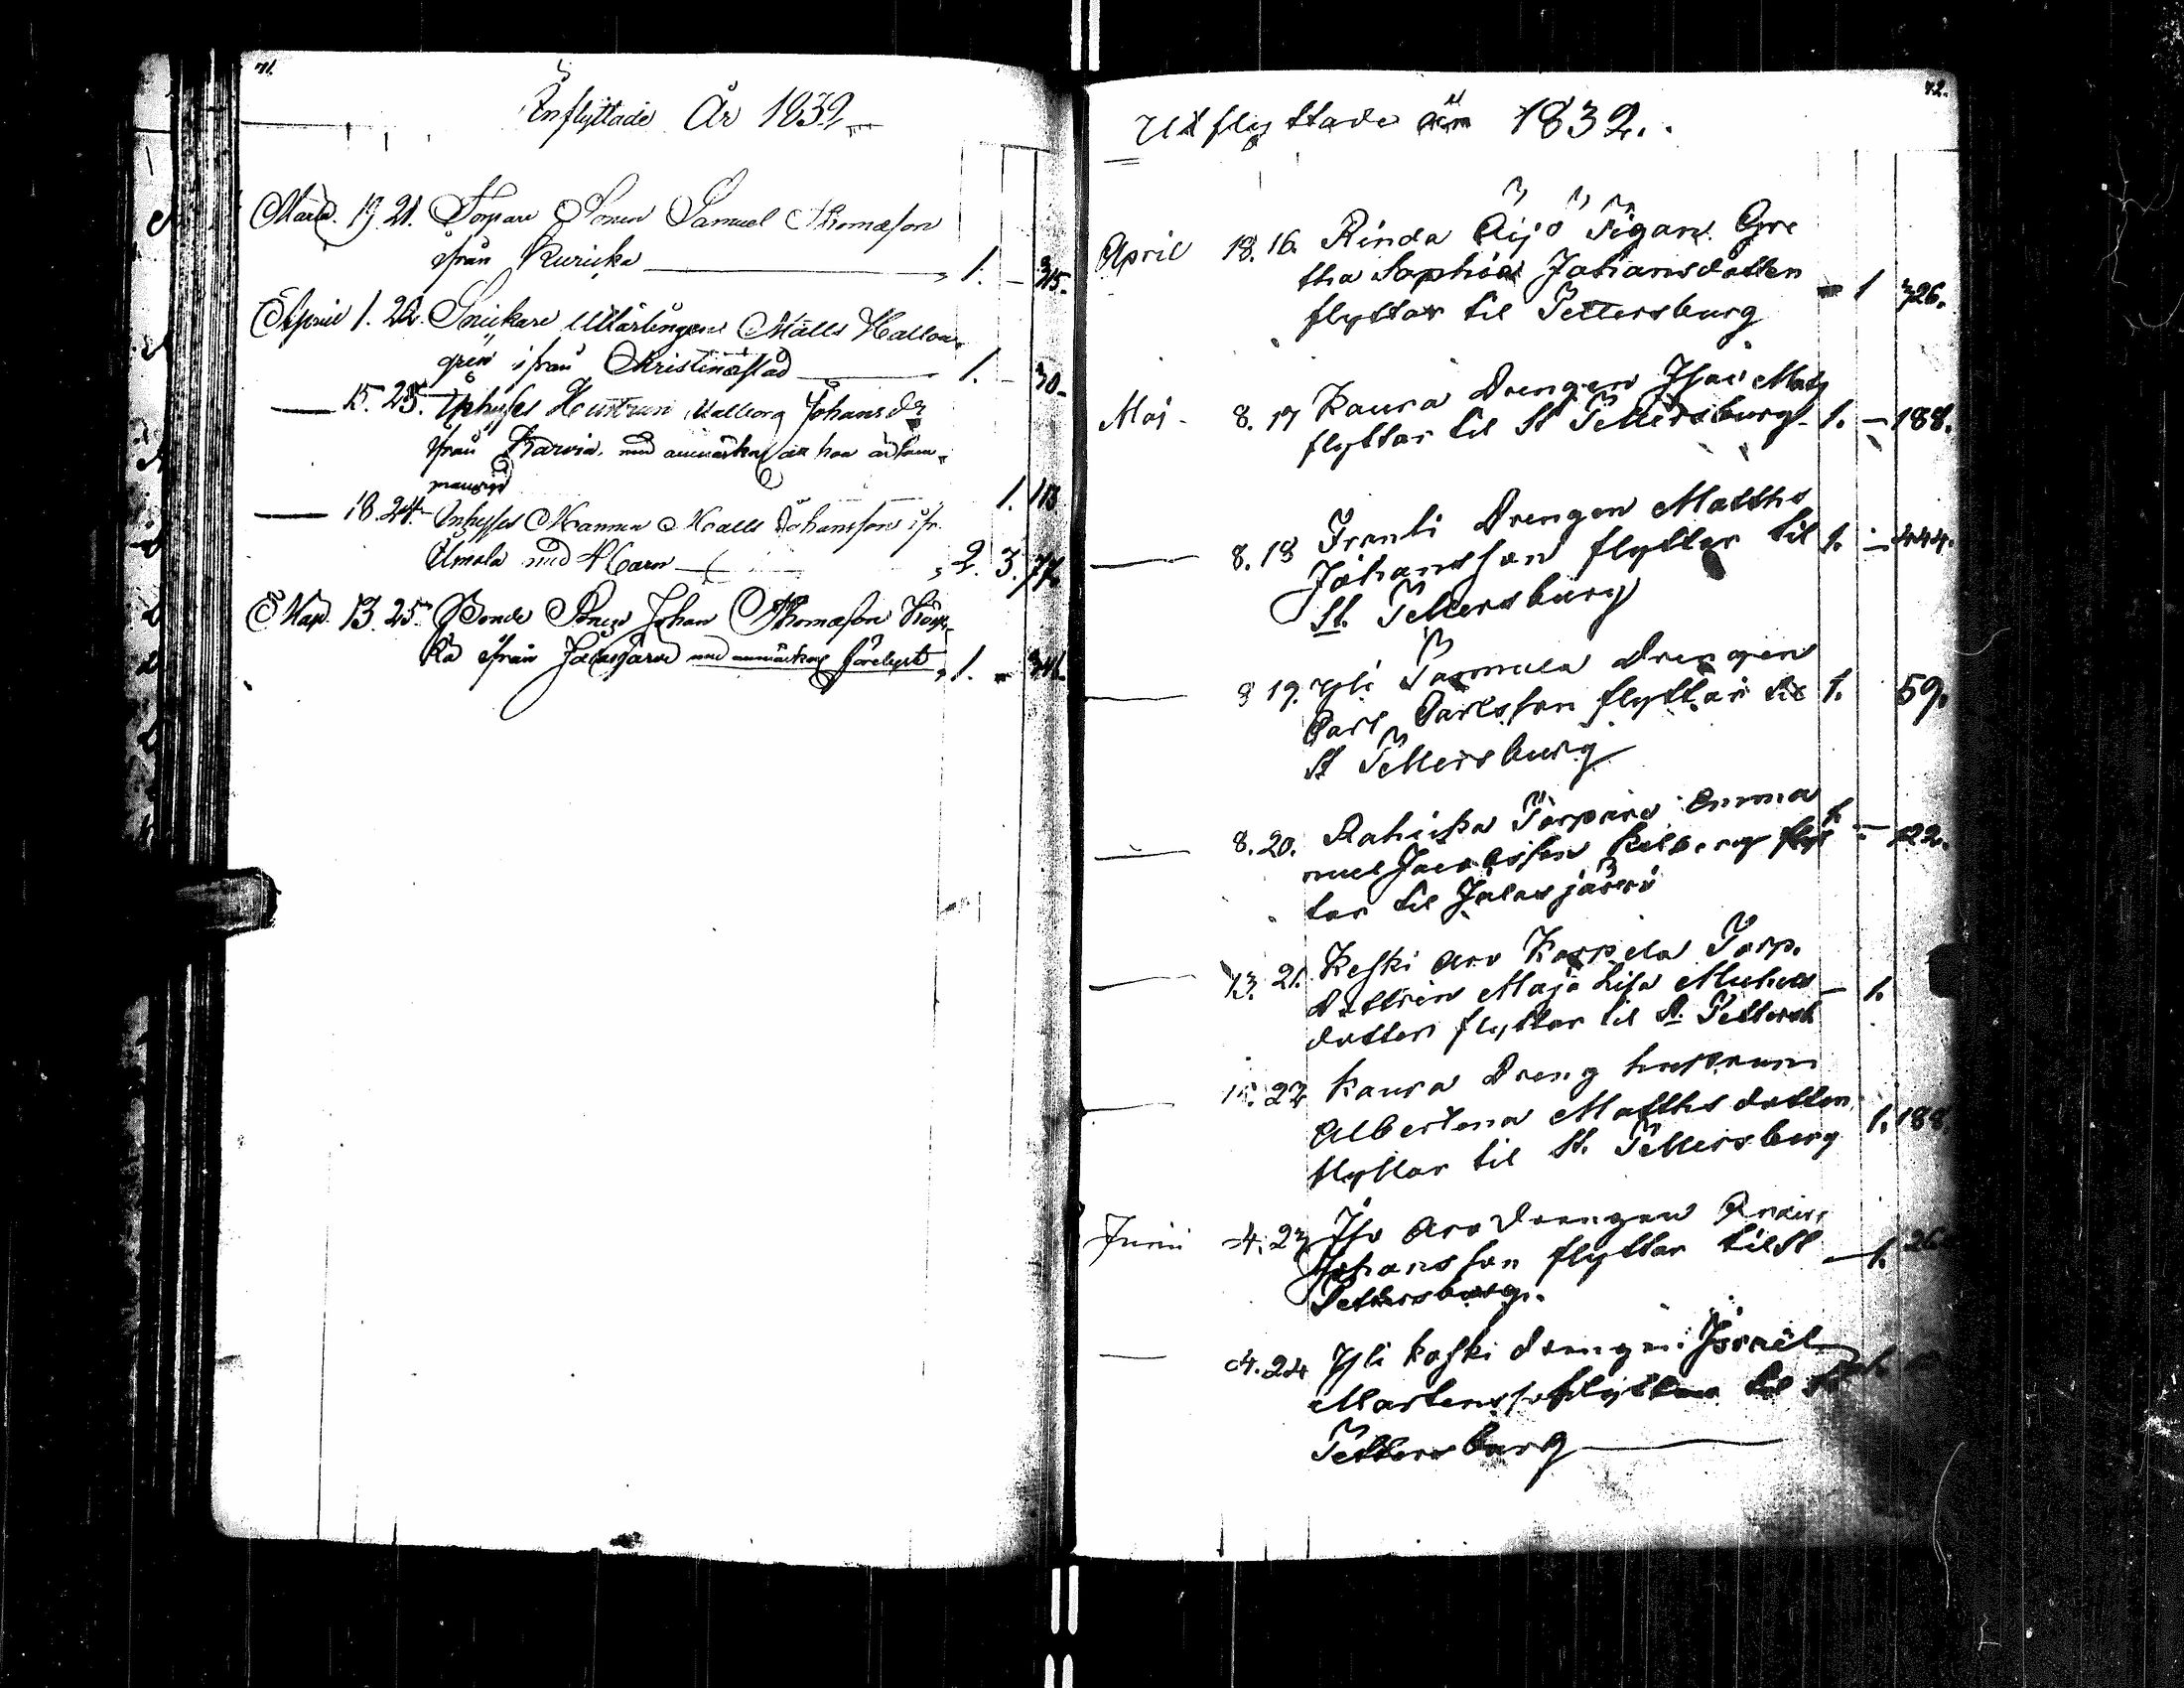 71.
Inflyttade År 1832
Mars. 19. 21. Torpare Sonen Samuel Thomasson
ifrån Kuricka 1. - 315.
April 1. 22. Snickare Lärlingen Matts Hallon-
gren ifrån Christinæstad 1. - 30.
15. 23. Inhyses Hustrun Walborg Johansdr
ifrån Karvia, med anmärkng att hon är sam-
1. 113
18. 24. Inhyses Mannen Matts Johansson ifr.
Ilmola med 4 Barn 2. 3. 77.
Maj. 13. 25. Bonde Sonen Johan Thomasson
ka ifrån Jalasjärvi med anmärkng 1. - 341.
72.
Utflyttade år 1832.
April 18. 16. Rinda Äijö Pigan Gre
tha Sophia Johansdotter
flyttar til Pettersburg - 1 326.
Maj. 8. 17 Kaura Drengen Isac Matts
flyttar til St Pettersburg 1. - 188.
8. 18 Iranti Drengen Matths
Johansson flyttar til 1. - 444.
St. Pettersburg
8 19. Yli Pannula Drengen
Carl Carlsson flyttar til 1. 59.
St Pettersburg
8. 20. Rahicka Torpare Emma
nuel Jacobsson flyt 1. - 122.
tar til Jalasjärvi
13. 21. Keski Aro Karpela Torp.
Dottren Maja Lisa Michels - 1.
dotter flyttar til St. Pettersb
15. 22 Kaura Dreng hustrun
Albertina Matths dotter 1. 188.
flyttar til St. Pettersburg
Junii 4. 23 Iso Aro Drengen Anders
Johansson flyttar til St - 1. 26
Pettersburg.
4. 24 Yli Koski drengen Israel
Martensson flyttar til St
Pettersburg